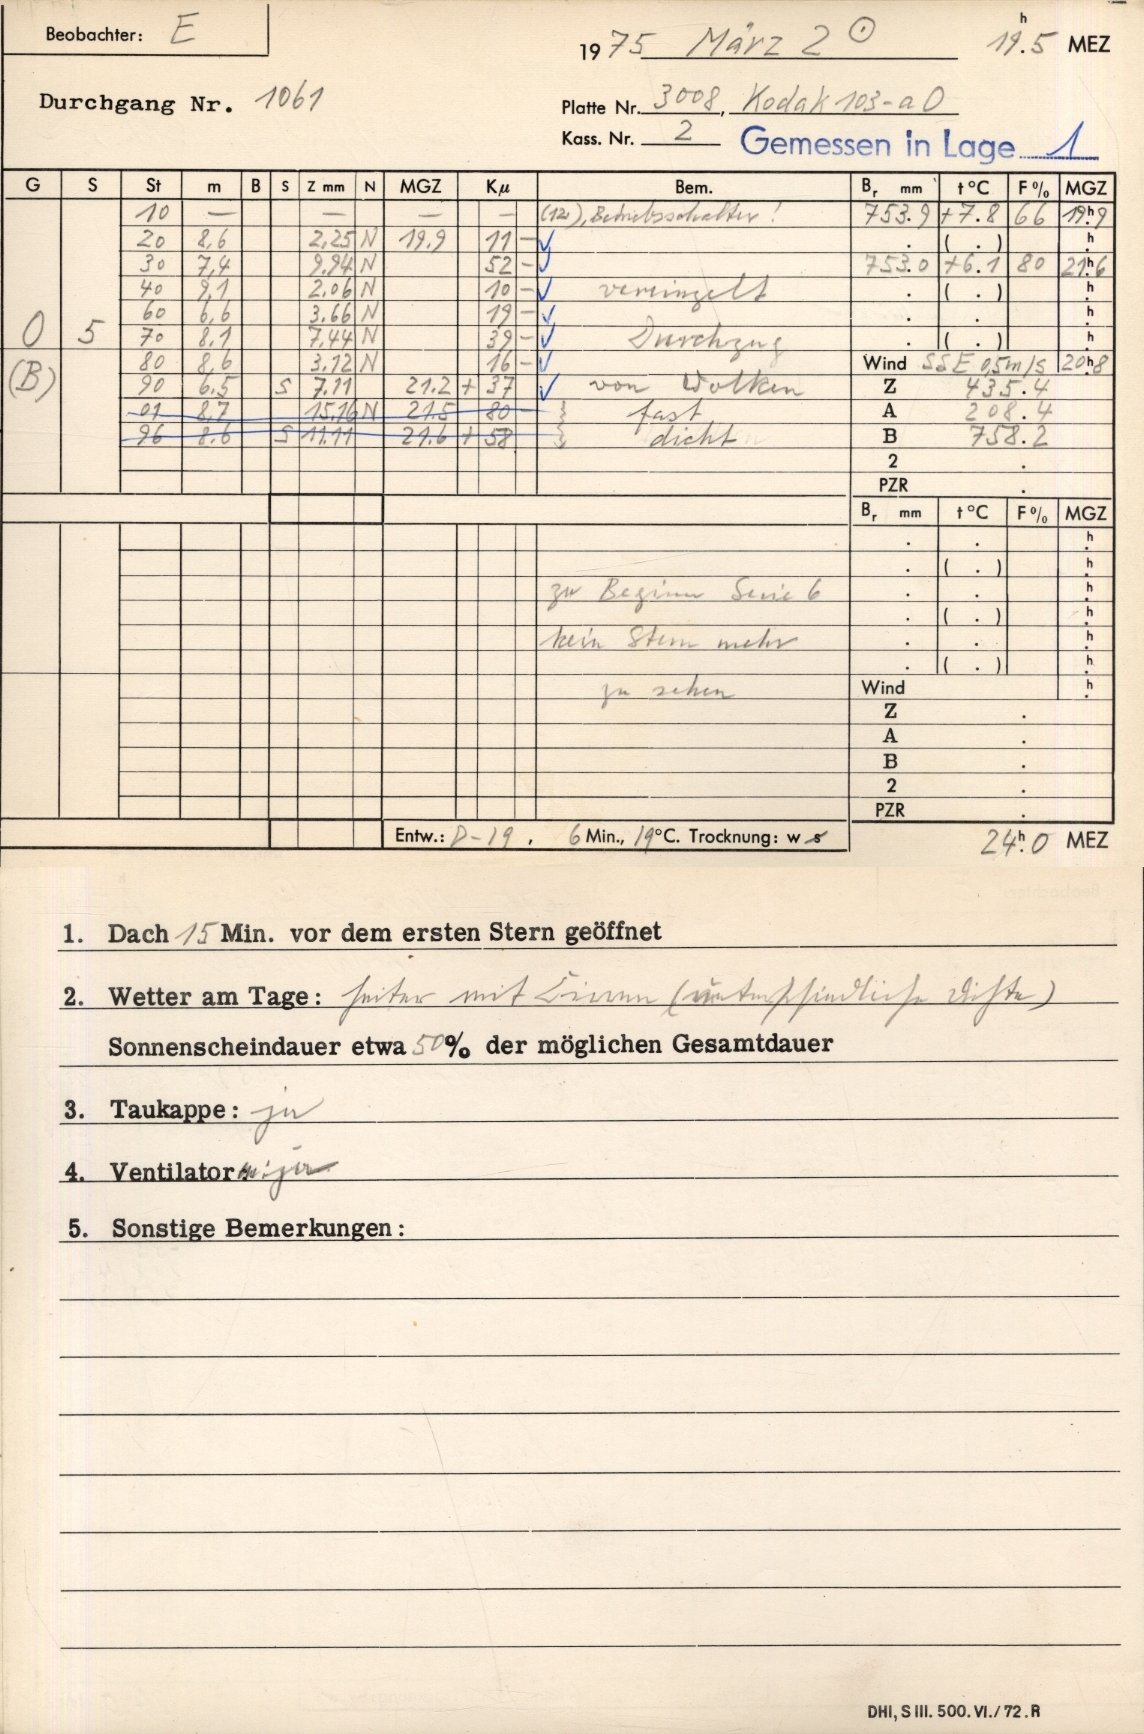 Beobachter: E
1975 März 2 ☉ 19ʰ.5 MEZ
Durchgang Nr. 1061
Platte Nr. 3008, Kodak 103-a O
Kass. Nr. 2 Gemessen in Lage 1
G S St m B S Z mm N MGZ Kμ Bem. Bᵣ mm t°C F% MGZ
10 — — — — (12), Betriebsschalter! 753.9 +7.8 66 19ʰ.9
20 8,6 2,25 N 19.9 11 – ✓ . ( . ) ʰ.
30 7,4 9.94 N 52 – ✓ 753.0 +6.1 80 21ʰ.6
40 9,1 2.06 N 10 – ✓ vereinzelt . ( . ) ʰ.
60 6,6 3.66 N 19 – ✓ . . ʰ.
0 5 70 8.1 7,44 N 39 – ✓ Durchzug . ( . ) ʰ.
80 8,6 3.12 N 16 – ✓ Wind SSE 0,5 m/s 20ʰ.8
(B) 90 6.5 S 7.11 21.2 + 37 ✓ von Wolken Z 435.4
01 8,7 15.16 N 21.5 80 – fast A 208.4
96 8.6 S 11.11 21.6 + 58 dicht B 758.2
2 .
PZR .
Bᵣ mm t°C F% MGZ
. . ʰ.
. ( . ) ʰ.
zu Beginn Serie 6 . . ʰ.
. ( . ) ʰ.
kein Stern mehr . . ʰ.
. ( . ) ʰ.
zu sehen Wind ʰ.
Z .
A .
B .
2 .
PZR .
Entw.: D-19, 6 Min., 19°C. Trocknung: w s 24ʰ.0 MEZ
1. Dach 15 Min. vor dem ersten Stern geöffnet
2. Wetter am Tage: heiter mit Cirren (unterschiedliche Dichte)
Sonnenscheindauer etwa 50% der möglichen Gesamtdauer
3. Taukappe: ja
4. Ventilator: ja
5. Sonstige Bemerkungen:
DHI, S III. 500. VI./72. R